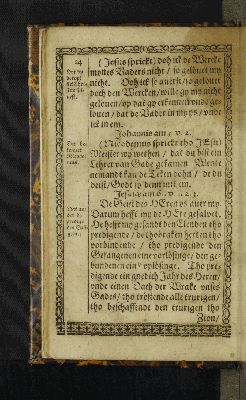 24
(Jesus sprickt) doh ick de Wercke
mynes Vaders nicht / so gelövet my
nicht. Doh ick se auerst / so gelövet
doch den Wercken / wille gy my nicht
gelöuen / up dat gy erkennen unde ge-
löuen / dat de Vader in my ys / unde
ick in em.
Johannis am 3. v. 2.
(Nicodemus sprickt tho JEsu)
Meister wy wethen / dat du bist ein
Lehrer van Gade gekamen. Wente
nemandt kan de Teken dohn / de du
deist / Godt sy denn mit em.
Jesaia am 61. v. 1. 2. 3.
De Geist des HEren ys auer my.
Darum hefft my de HEre gesalvet.
He hefft my gesandt den Elenden tho
predigende / de thobraken herten tho
vorbindende / tho predigende den
Gefangenen eine vorlösinge / den ge-
bundenen ein upslötinge. Tho pre-
digende ein gnedich Jahr des Heren /
unde einen Dach der Wrake unses
Gades / tho tröstende alle trurigen /
tho beschaffende den trurigen tho
Zion /